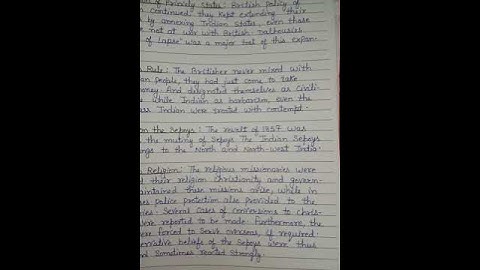 of Princely States: British Policy of
continued. they kept extending their
by annexing Indian states, even those
not at war with British. Dalhousies
of Lapse was a major tool of this expan-
Rule: The Britishers never mixed with
an people, they had just come to take
money. And designated themselves as Civili-
while Indian as barbarism, even the
ss Indian were treated with contempt.
on the Sepoys: The revolt of 1857 was
the mutiny of Sepoys The Indian Sepoys
ngs to the North and North-West India.
Religion: The religious missionaries were
d their religion Christianity and govern-
aintained these missions arise, while in
police protection also provided to the
ies. Several cases of conversions to Chris-
were reported to be made. Furthermore, the
ere forced to serve overseas, if required.
ervative beliefs of the Sepoys were thus
d sometimes reacted strongly.